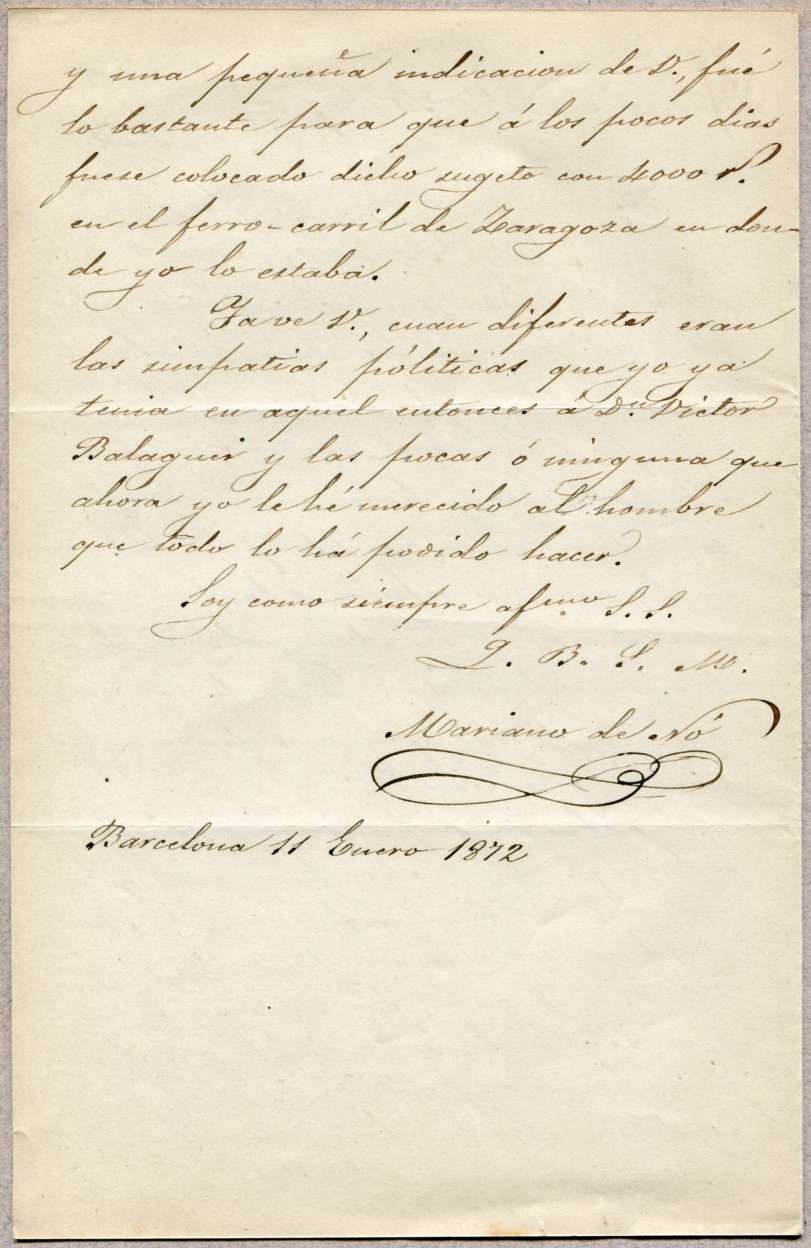 y una pequeña indicacion de V., fué
lo bastante para que á los pocos dias
fuese colocado dicho sugeto con 4000 r.
en el ferro-carril de Zaragoza en don-
de yo lo estaba.
Ya ve V., cuan diferentes eran
las simpatias póliticas que yo ya
tenia en aquel entonces á Dn. Victor
Balaguer y las pocas ó ninguna que
ahora yo le hé merecido al hombre
que todo lo há podido hacer.
Soy como siempre afmo. S. S.
Q. B. S. M.
Mariano de Nó
Barcelona 11 Enero 1872